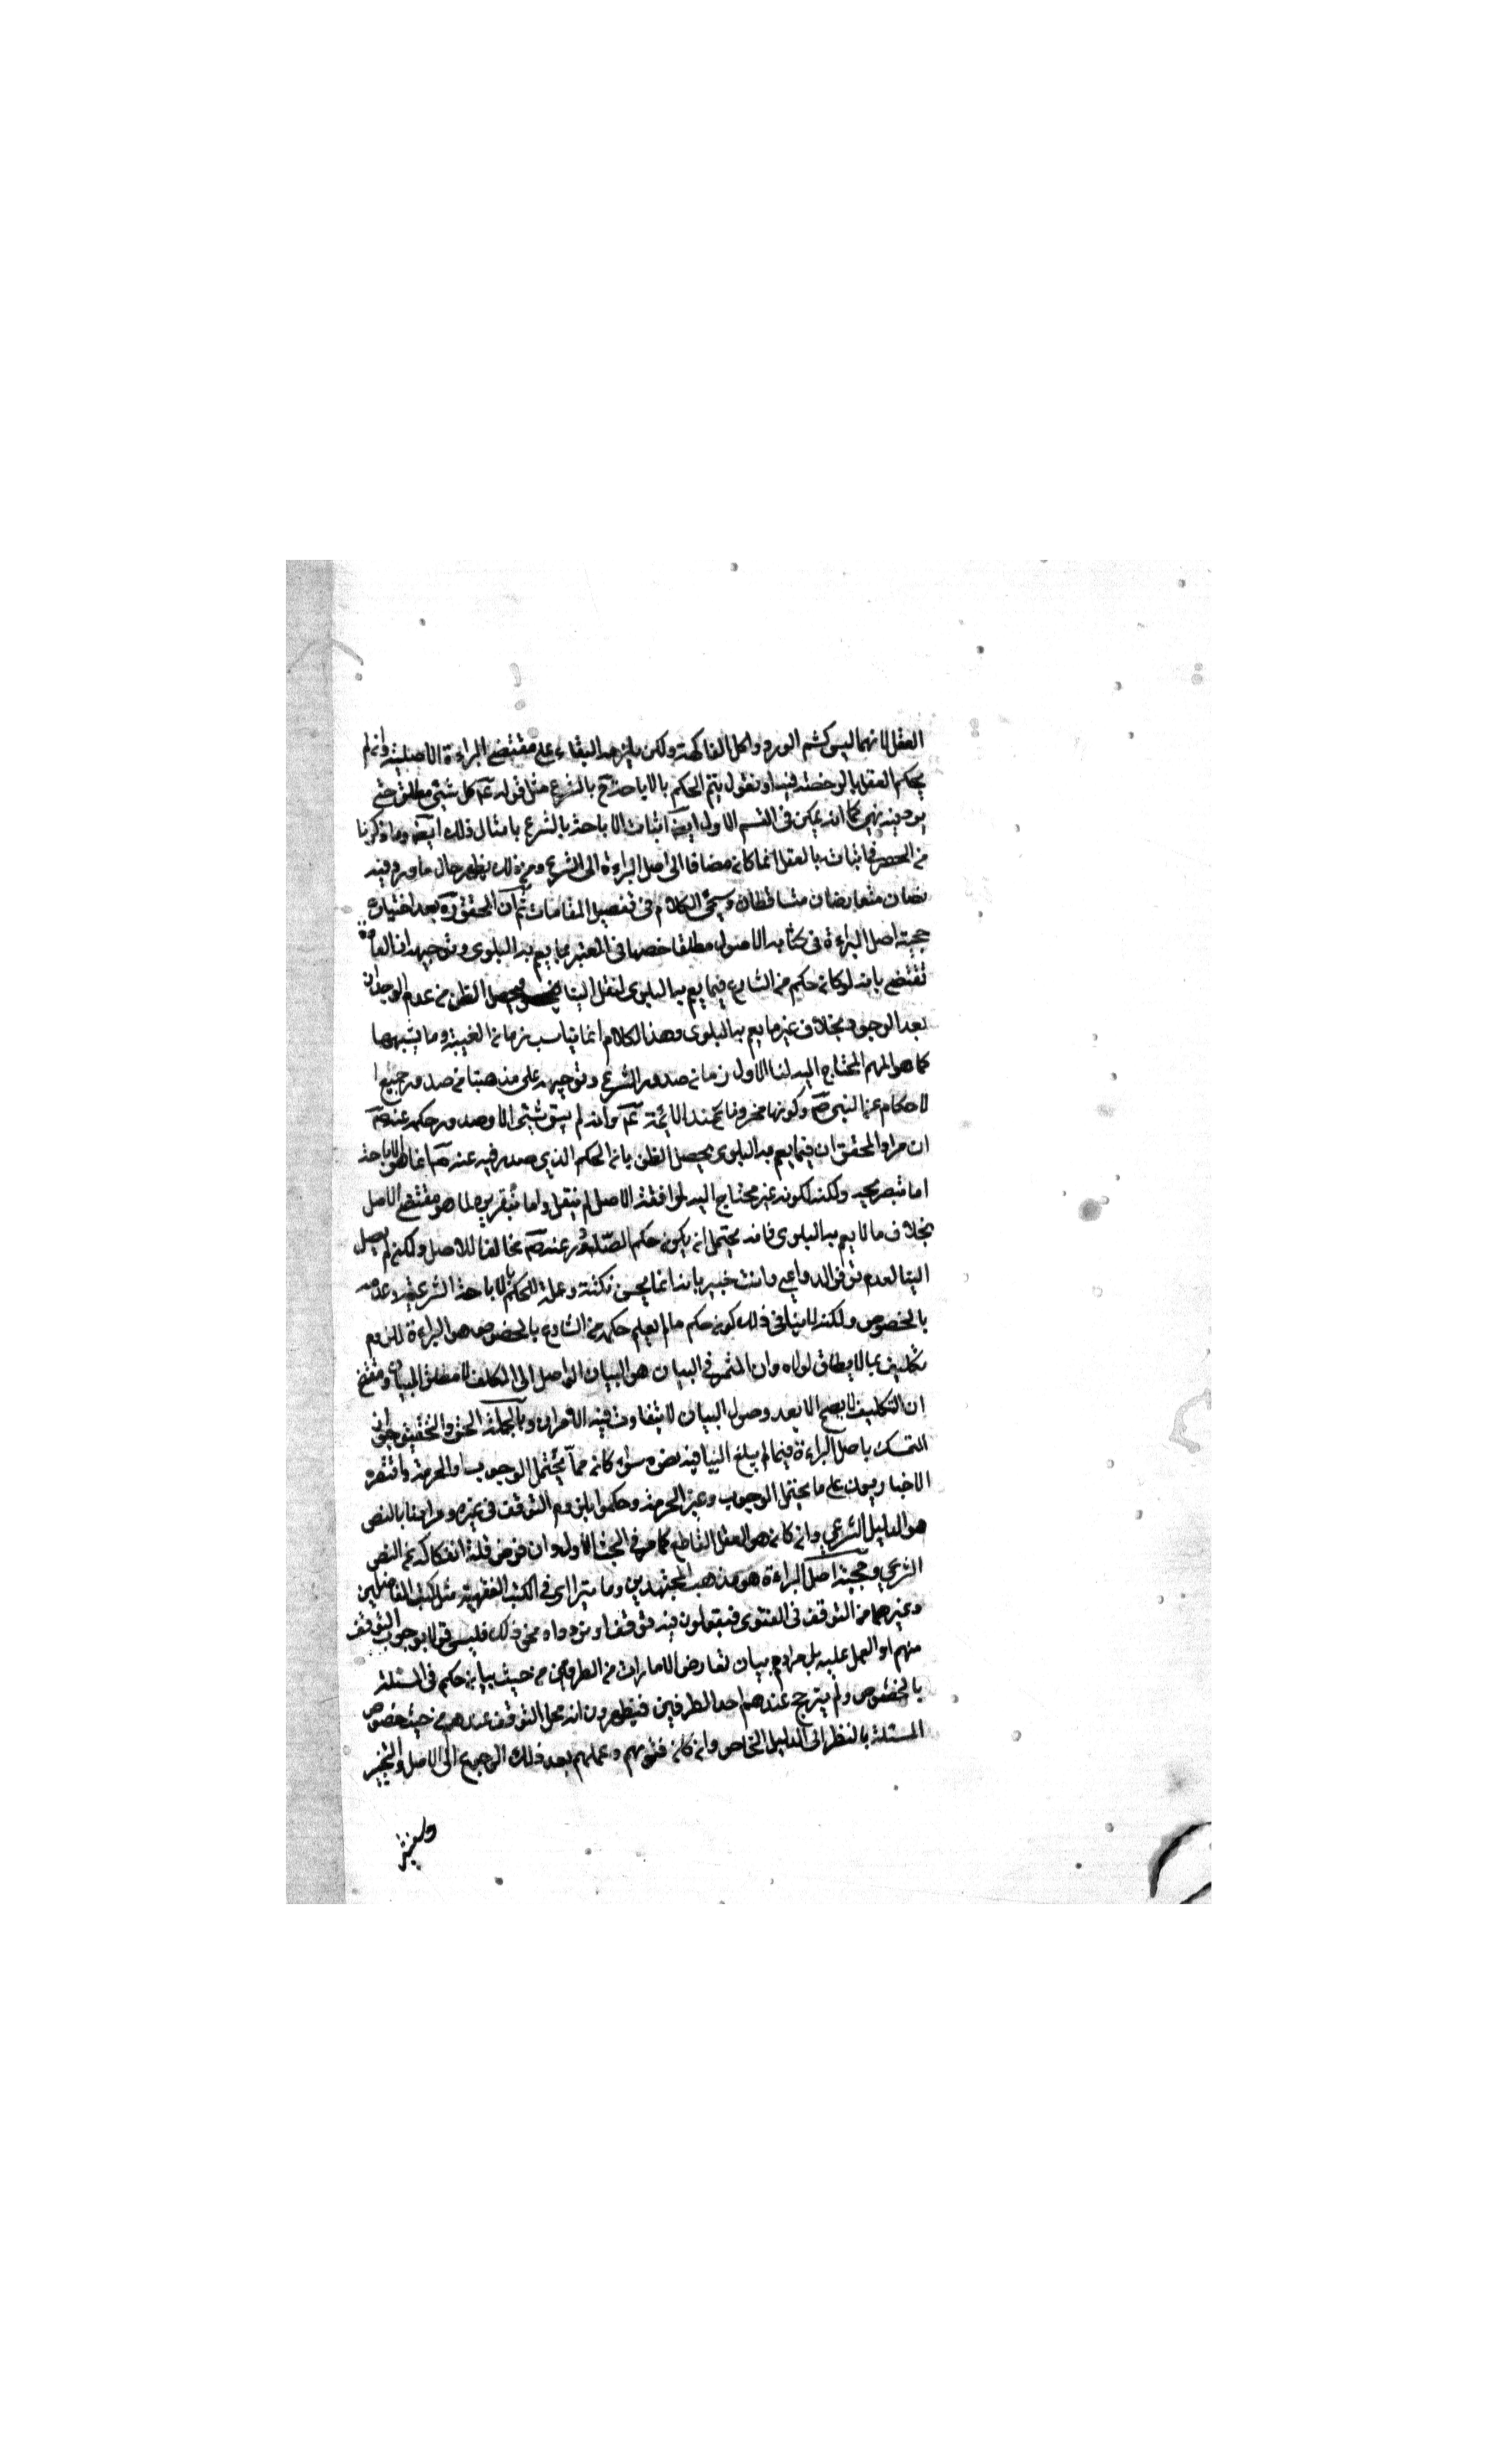 العقل لانهما ليس كشم الورد واكل الفاكهة ولكن يلزمه البقاء على مقتضى البراءة الاصلية وان لم
يحكم العقل بالرخصة فيه او نقول يتم الحكم بالاباحة ح بالشرع مثل قوله عم كل شئ مطلق حتى
يرد فيه نهى كما انه يمكن فى القسم الاول ايضَ اثبات الاباحة بالشرع بامثال ذلك ايضَ وما ذكرنا
من الحصر فى اثباته بالعقل انما كان مضافا الى اصل البراءة الى الشرع ومن ذلك يظهر حال ما ورد فيه
نصان متعارضان متساقطان وسيجئ الكلام فى تفصيل المقامات ثم ان المحقق ره بعد اختياره
حجية اصل البراءة فى كتابه الاصول مطلقا خصها فى المعتبر بما يعم به البلوى وتوجيهه ان العادة
تقتضى بانه لو كان حكم من الشارع فيما يعم به البلوى لنقل الينا فيحصل الظن من عدم الوجدان
بعد الوجود بخلاف غير ما يعم به البلوى وهذا الكلام انما يناسب زمان الغيبة وما يشبهها
كما هو المهم المحتاج اليه لنا لا اول زمان صدور الشرع وتوجيهه على مذهبنا من صدور جميع ا
لاحكام عن النبى صَ وكونها مخزونا عند الائمة عَم وانه لم يبق شئ الا وصدر حكمه عنه صَ
ان مراد المحقق ان فيما يعم به البلوى يحصل الظن بان الحكم الذي صدر فيه عنه صَ انما هو الاباحة
اما بتصريحه ولكنه لكونه غير محتاج اليه لموافقته الاصل لم ينقل واما بتقريره لما هو مقتضى الاصل
بخلاف ما لا يعم به البلوى فانه يحتمل ان يكون حكم الصادر عنه صَ مخالفا للاصل ولكن لم يصل
الينا لعدم توفر الدواعي وانت خبير بان هذا انما يحسن نكتة وعلة للحكم بالاباحة الشرعية وعدمه
بالخصوص ولكنه لا ينافى ذلك كون حكم ما لم يعلم حكمه من الشارع بالخصوص هو البراءة للزوم
تكليف بما لا يطاق لولاه وان الثمرة فى البيان هو البيان الواصل الى المكلف لا مطلق البيان ومقتضى
ان التكليف لا يصح الا بعد وصول البيان لا يتفاوت فيه الامران وبالجملة الحق والتحقيق جواز
التمسك باصل البراءة فيما لم يبلغ الينا فيه نص سواء كان مما يحتمل الوجوب او الحرمة واقتصره
الاخباريون على ما يحتمل الوجوب وغير الحرمة وحكموا بلزوم التوقف فى غيره ومرادنا بالنص
هو الدليل الشرعي وان كان هو العقل القاطع كما مر فى البحث الاول وان فرض قلة انفكاكه عن النص
الشرعي وحجية اصل البراءة هو مذهب المجتهدين وما يتراءى فى الكتب الفقهية مثل كتب الفاضلين
وغيرهما من التوقف فى الفتوى فيقولون فيه توقف او تردد او نحو ذلك فليس قولا بوجوب التوقف
منهم او العمل عليه بل مرادهم بيان تعارض الامارات من الطرفين من حيث بيان حكم فى المسئلة
بالخصوص ولم يترجح عندهم احد الطرفين فيظهرون انه محل التوقف عندهم من حيث خصوص
المسئلة بالنظر الى الدليل الخاص وان كان فتويهم وعملهم بعد ذلك الرجوع الى الاصل والتخيير